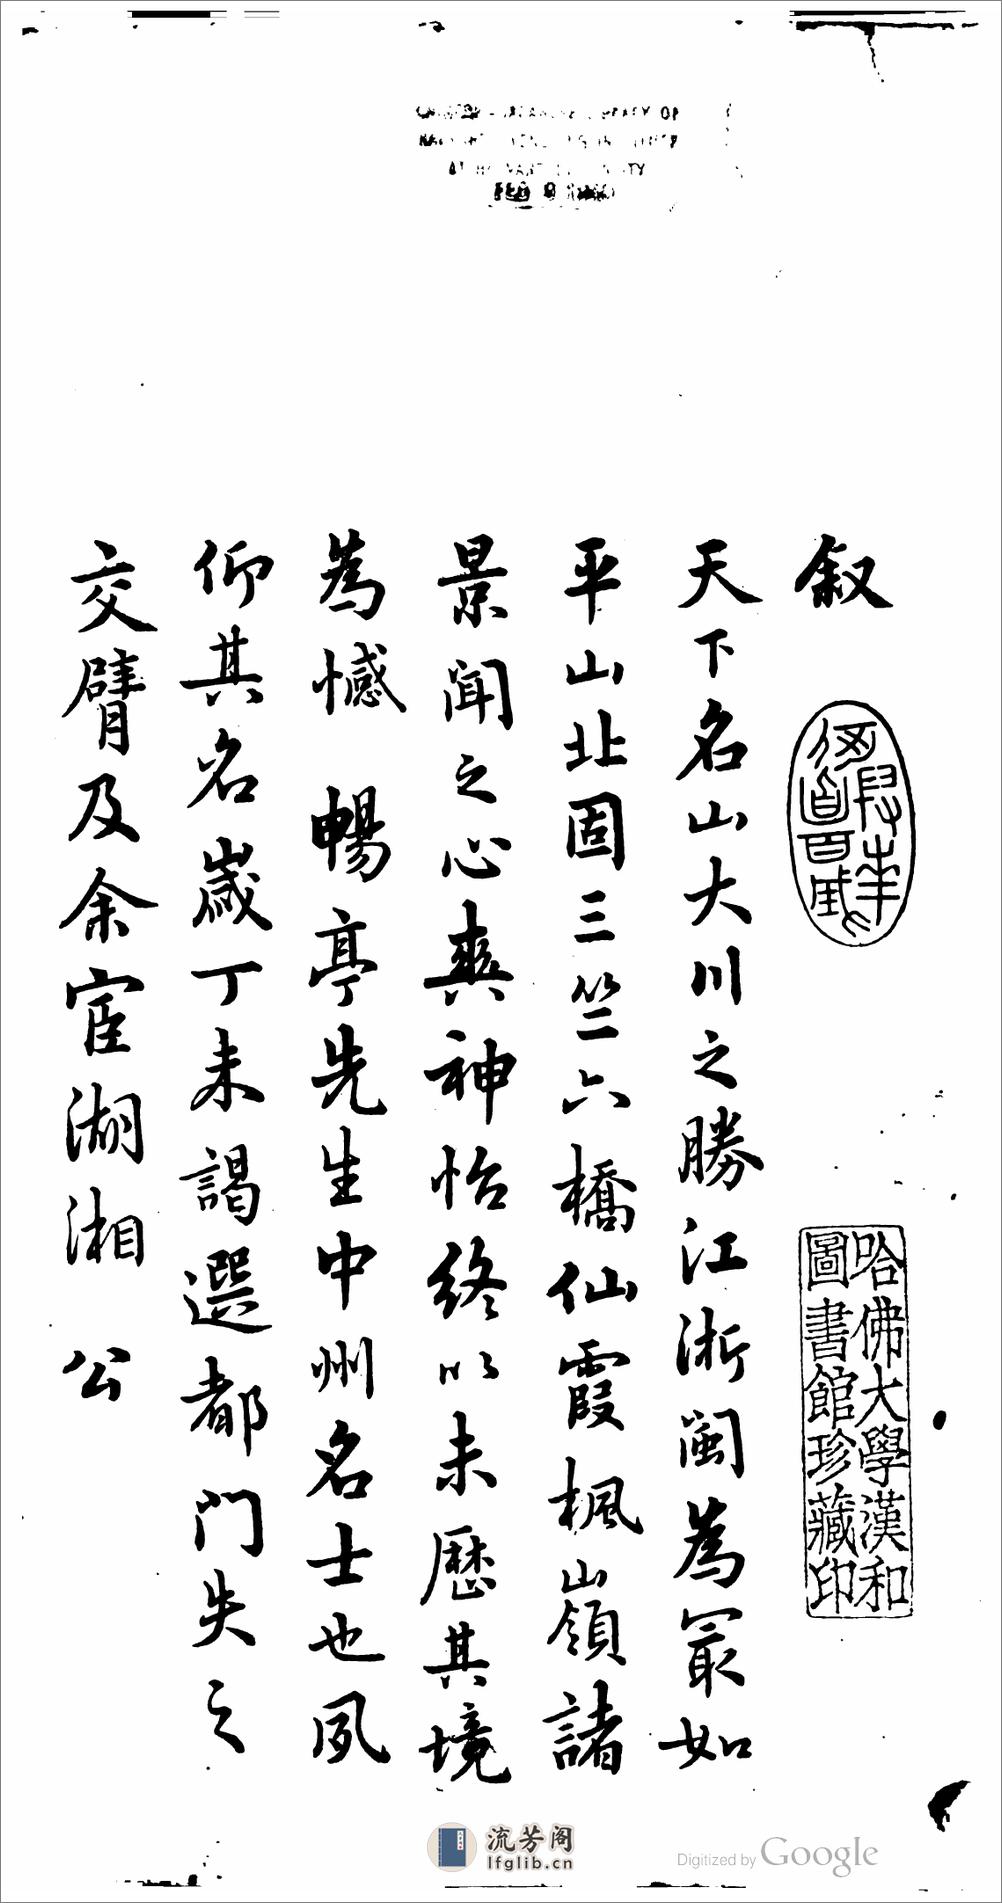 叙
天下名山大川之勝江浙閩為冣如
平山北固三竺六橋仙霞楓嶺諸
景聞之心爽神怡終以未歷其境
為憾 暢亭先生中州名士也夙
仰其名歲丁未謁選都門失之
交臂及余宦湖湘 公
哈佛大學漢和
圖書館珍藏印
流芳阁
lfglib.cn
Digitized by Google